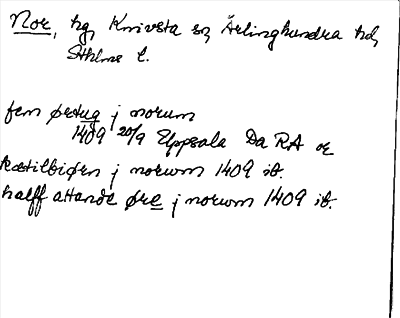 Nor, hg, Knivsta sn, Ärlinghundra hd,
Sthlms l.
fem ørtug j norum
1409 20/9 Uppsala Da RA or
kætilbiørn j norum 1409 ib.
halff attande øre j norum 1409 ib.